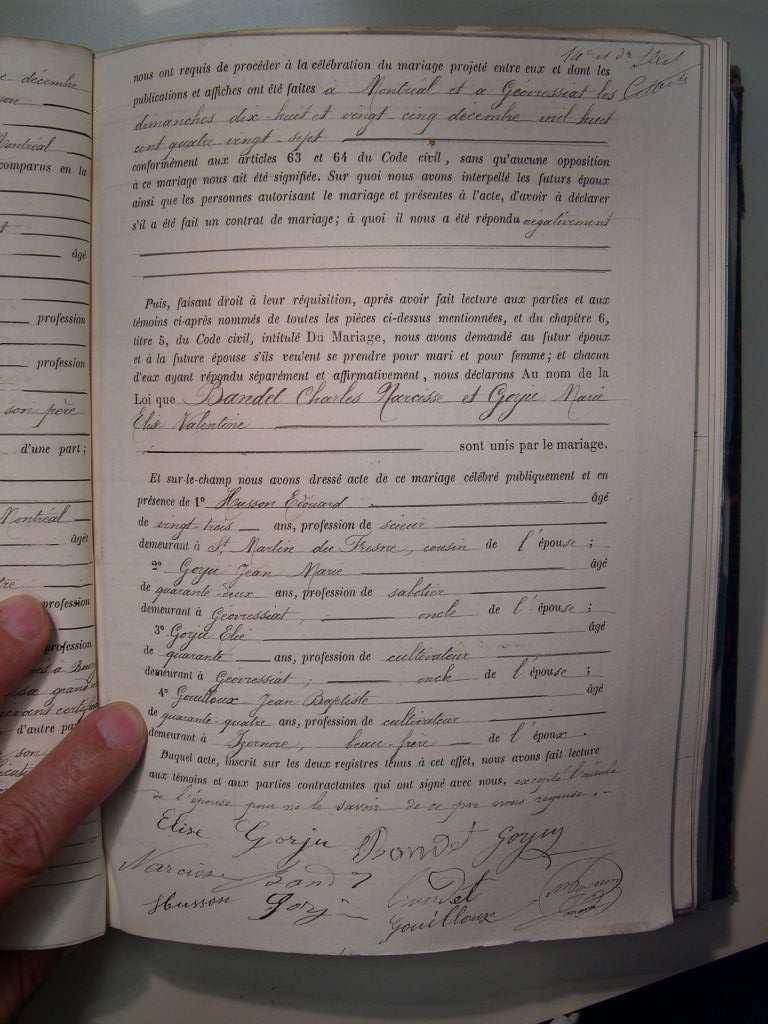 décembre
comparus en la
âgé
profession
profession
son père
d'une part;
Montréal
âgés
profession
profession
d'autre par
nous ont requis de procéder à la célébration du mariage projeté entre eux et dont les
publications et affiches ont été faites à Montréal et à Géovressiat les
dimanches dix-huit et vingt-cinq décembre mil huit
cent quatre vingt-sept
conformément aux articles 63 et 64 du Code civil, sans qu'aucune opposition
à ce mariage nous ait été signifiée. Sur quoi nous avons interpellé les futurs époux
ainsi que les personnes autorisant le mariage et présentes à l'acte, d'avoir à déclarer
s'il a été fait un contrat de mariage; à quoi il nous a été répondu négativement
Puis, faisant droit à leur réquisition, après avoir fait lecture aux parties et aux
témoins ci-après nommés de toutes les pièces ci-dessus mentionnées, et du chapitre 6,
titre 5, du Code civil, intitulé Du Mariage, nous avons demandé au futur époux
et à la future épouse s'ils veulent se prendre pour mari et pour femme; et chacun
d'eux ayant répondu séparément et affirmativement, nous déclarons Au nom de la
Loi que Bandet Charles Narcisse et Gorju Marie
Elise Valentine
sont unis par le mariage.
Et sur-le-champ nous avons dressé acte de ce mariage célébré publiquement et en
présence de 1° Husson Edouard âgé
de vingt-trois ans, profession de scieur
demeurant à St Martin du Fresne, cousin de l'épouse;
2° Gorju Jean Marie âgé
de quarante-deux ans, profession de sabotier
demeurant à Géovressiat, oncle de l'épouse;
3° Gorju Elie âgé
de quarante ans, profession de cultivateur
demeurant à Géovressiat, oncle de l'épouse;
4° Gouilloux Jean Baptiste âgé
de quarante-quatre ans, profession de cultivateur
demeurant à Izernore, beau-frère de l'époux.
Duquel acte, inscrit sur les deux registres tenus à cet effet, nous avons fait lecture
aux témoins et aux parties contractantes qui ont signé avec nous, excepté l'aïeule
de l'épouse pour ne le savoir de ce par nous requise.
Elise Gorju Bandet Gorju
Narcisse Bandet
Husson Gorju Gouilloux